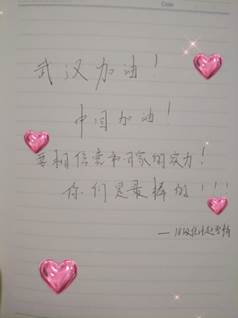 Date
武汉加油!
中国加油!
要相信党和国家的实力!
你们是最棒的!!!